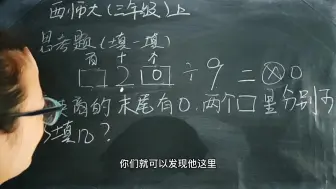 西师大(三年级)上
思考题(填一填)
百 十 个
□ 2 0 ÷ 9 = ⊗ 0
离的末尾有0,两个□里分别
填几?
你们就可以发现他这里